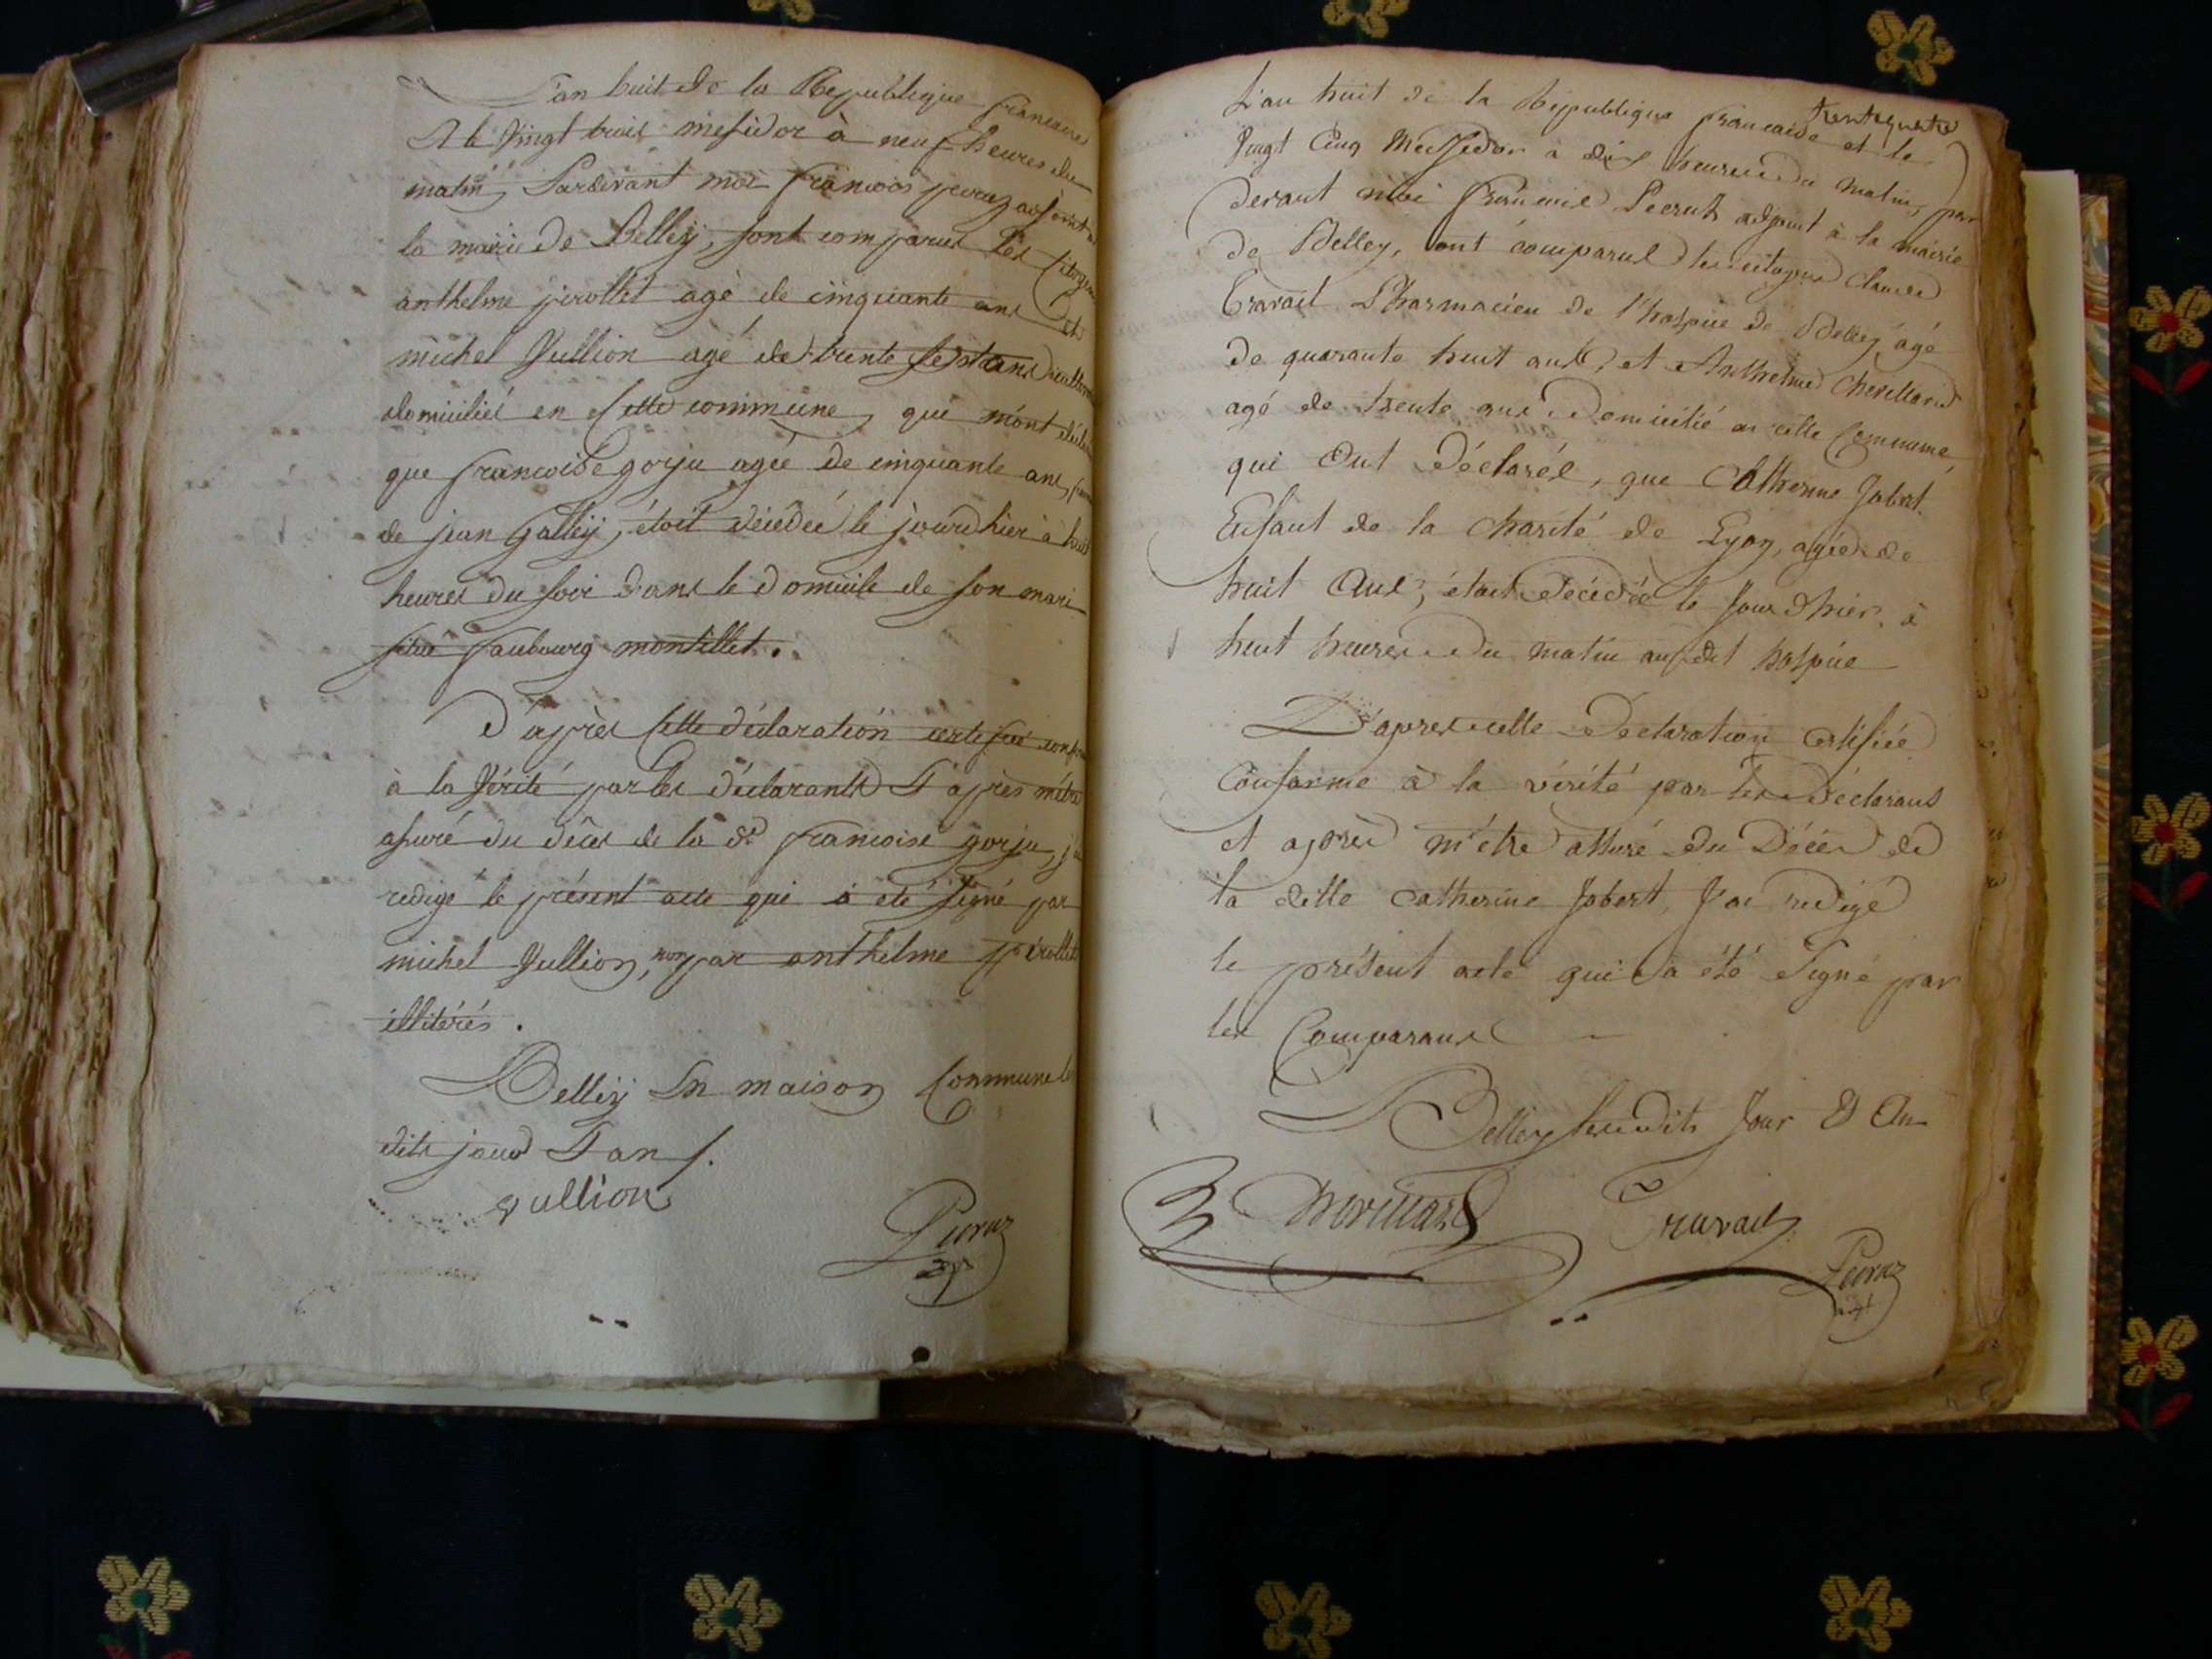 L'an huit de la République francaise
& le Vingt trois mesidor à neuf heures du
matin, Pardevant moi francois peyruz adjoint à
la mairie de Belley, sont comparus les Citoyens
anthelme perollet agé de cinquante ans et
michel Vullion agé de trente sept ans
domiciliés en Cette commune, qui m'ont déclaré
que francoise gorju agée de cinquante ans,
de jean Galley, étoit décédée le jourdhier à huit
heures du soir dans le domicile de son mari
situé faubourg montillet.
D'après Cette déclaration certifiée conforme
à la Vérité par les déclarants & après m'être
assuré du décès de la de francoise gorju, j'ai
redigé le présent acte qui à eté signé par
michel Vullion, non par anthelme perollet
illitérés.
Belley En maison Commune les
dits jour & an.
Vullion
trente quatre
L'an huit de la République francaise et le
Vingt Cinq Messidor à dix heures du matin, par
devant moi francois Peeruz adjoint à la mairie
de Belley, sont comparus les citoyens Claude
Travail Pharmacien de l'hospice de Belley agé
de quarante huit ans, et Anthelme Chevillard
agé de trente ans Domicilié en cette Commune,
qui Ont Déclarés, que Catherine Jobert
Enfant de la Charité de Lyon, agée de
huit Ans, était Décédée le Jour d'hier, à
huit heures du matin audit hospice
D'apres cette Déclaration certifiée
Conforme à la vérité par les Déclarans
et après m'être assuré du Décès de
la ditte Catherine Jobert, J'ai redigé
le présent acte qui à été Signé par
les Comparans
Belley lesdits Jour & An
Chevillard Travail